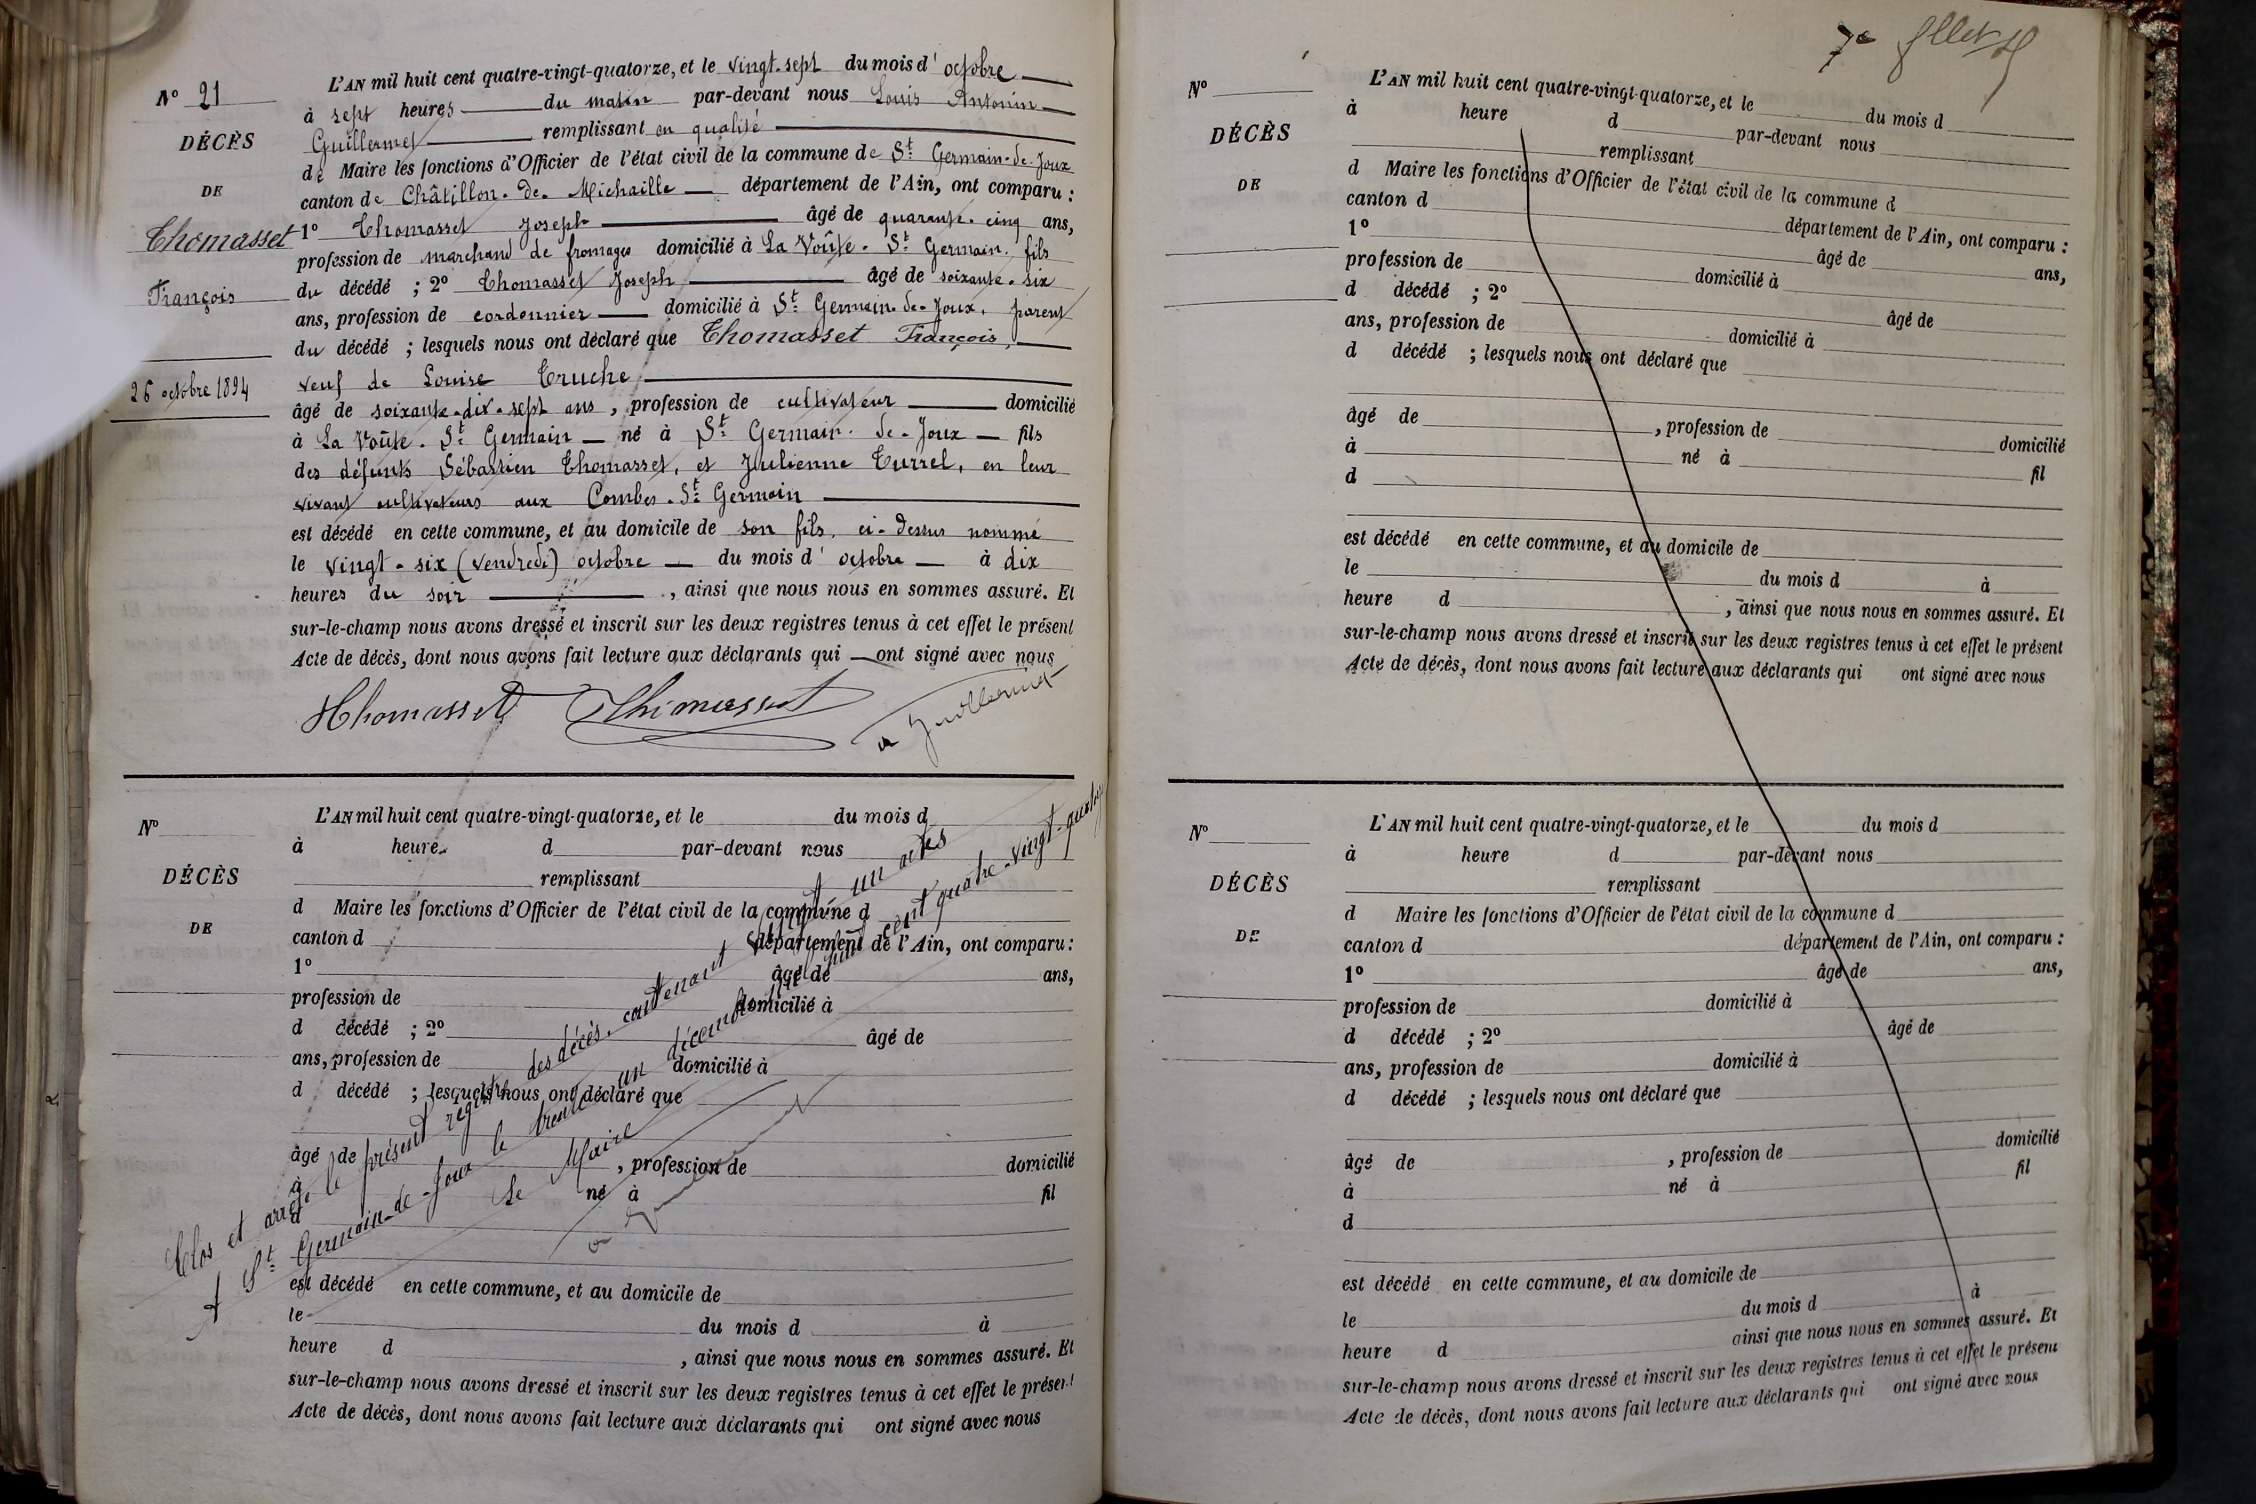 N° 21
DÉCÈS
DE
Thomasset
François
26 octobre 1894
L'AN mil huit cent quatre-vingt-quatorze, et le vingt-sept du mois d'octobre
à sept heures du matin par-devant nous Louis Antonin
Guillermet remplissant en qualité
de Maire les fonctions d'Officier de l'état civil de la commune de St Germain-de-Joux
canton de Châtillon-de-Michaille département de l'Ain, ont comparu :
1° Thomasset Joseph âgé de quarante-cinq ans,
profession de marchand de fromages domicilié à La Voûte-St Germain, fils
du décédé ; 2° Thomasset Joseph âgé de soixante-six
ans, profession de cordonnier domicilié à St Germain-de-Joux, parent
du décédé ; lesquels nous ont déclaré que Thomasset François,
veuf de Louise Truche
âgé de soixante-dix-sept ans, profession de cultivateur domicilié
à La Voûte-St Germain né à St Germain-de-Joux fils
des défunts Sébastien Thomasset, et Julienne Turrel, en leur
vivant cultivateurs aux Combes-St Germain
est décédé en cette commune, et au domicile de son fils, ci-dessus nommé
le vingt-six (vendredi) octobre du mois d'octobre à dix
heures du soir , ainsi que nous nous en sommes assuré. Et
sur-le-champ nous avons dressé et inscrit sur les deux registres tenus à cet effet le présent
Acte de décès, dont nous avons fait lecture aux déclarants qui ont signé avec nous
Thomasset Thomasset Guillermet
N°
DÉCÈS
DE
L'AN mil huit cent quatre-vingt-quatorze, et le du mois d
à heure d par-devant nous
remplissant
d Maire les fonctions d'Officier de l'état civil de la commune d
canton d département de l'Ain, ont comparu :
1° âgé de ans,
profession de domicilié à
d décédé ; 2° âgé de
ans, profession de domicilié à
d décédé ; lesquels nous ont déclaré que
âgé de , profession de domicilié
à né à fil
d
est décédé en cette commune, et au domicile de
le du mois d à
heure d , ainsi que nous nous en sommes assuré. Et
sur-le-champ nous avons dressé et inscrit sur les deux registres tenus à cet effet le présent
Acte de décès, dont nous avons fait lecture aux déclarants qui ont signé avec nous
Clos et arrêté le présent registre des décès, contenant vingt un actes
A St Germain-de-Joux le trente un décembre mil huit cent quatre-vingt-quatorze
Le Maire
7e
N°
DÉCÈS
DE
L'AN mil huit cent quatre-vingt-quatorze, et le du mois d
à heure d par-devant nous
remplissant
d Maire les fonctions d'Officier de l'état civil de la commune d
canton d département de l'Ain, ont comparu :
1° âgé de ans,
profession de domicilié à
d décédé ; 2° âgé de
ans, profession de domicilié à
d décédé ; lesquels nous ont déclaré que
âgé de , profession de domicilié
à né à fil
d
est décédé en cette commune, et au domicile de
le du mois d à
heure d , ainsi que nous nous en sommes assuré. Et
sur-le-champ nous avons dressé et inscrit sur les deux registres tenus à cet effet le présent
Acte de décès, dont nous avons fait lecture aux déclarants qui ont signé avec nous
N°
DÉCÈS
DE
L'AN mil huit cent quatre-vingt-quatorze, et le du mois d
à heure d par-devant nous
remplissant
d Maire les fonctions d'Officier de l'état civil de la commune d
canton d département de l'Ain, ont comparu :
1° âgé de ans,
profession de domicilié à
d décédé ; 2° âgé de
ans, profession de domicilié à
d décédé ; lesquels nous ont déclaré que
âgé de , profession de domicilié
à né à fil
d
est décédé en cette commune, et au domicile de
le du mois d à
heure d ainsi que nous nous en sommes assuré. Et
sur-le-champ nous avons dressé et inscrit sur les deux registres tenus à cet effet le présent
Acte de décès, dont nous avons fait lecture aux déclarants qui ont signé avec nous